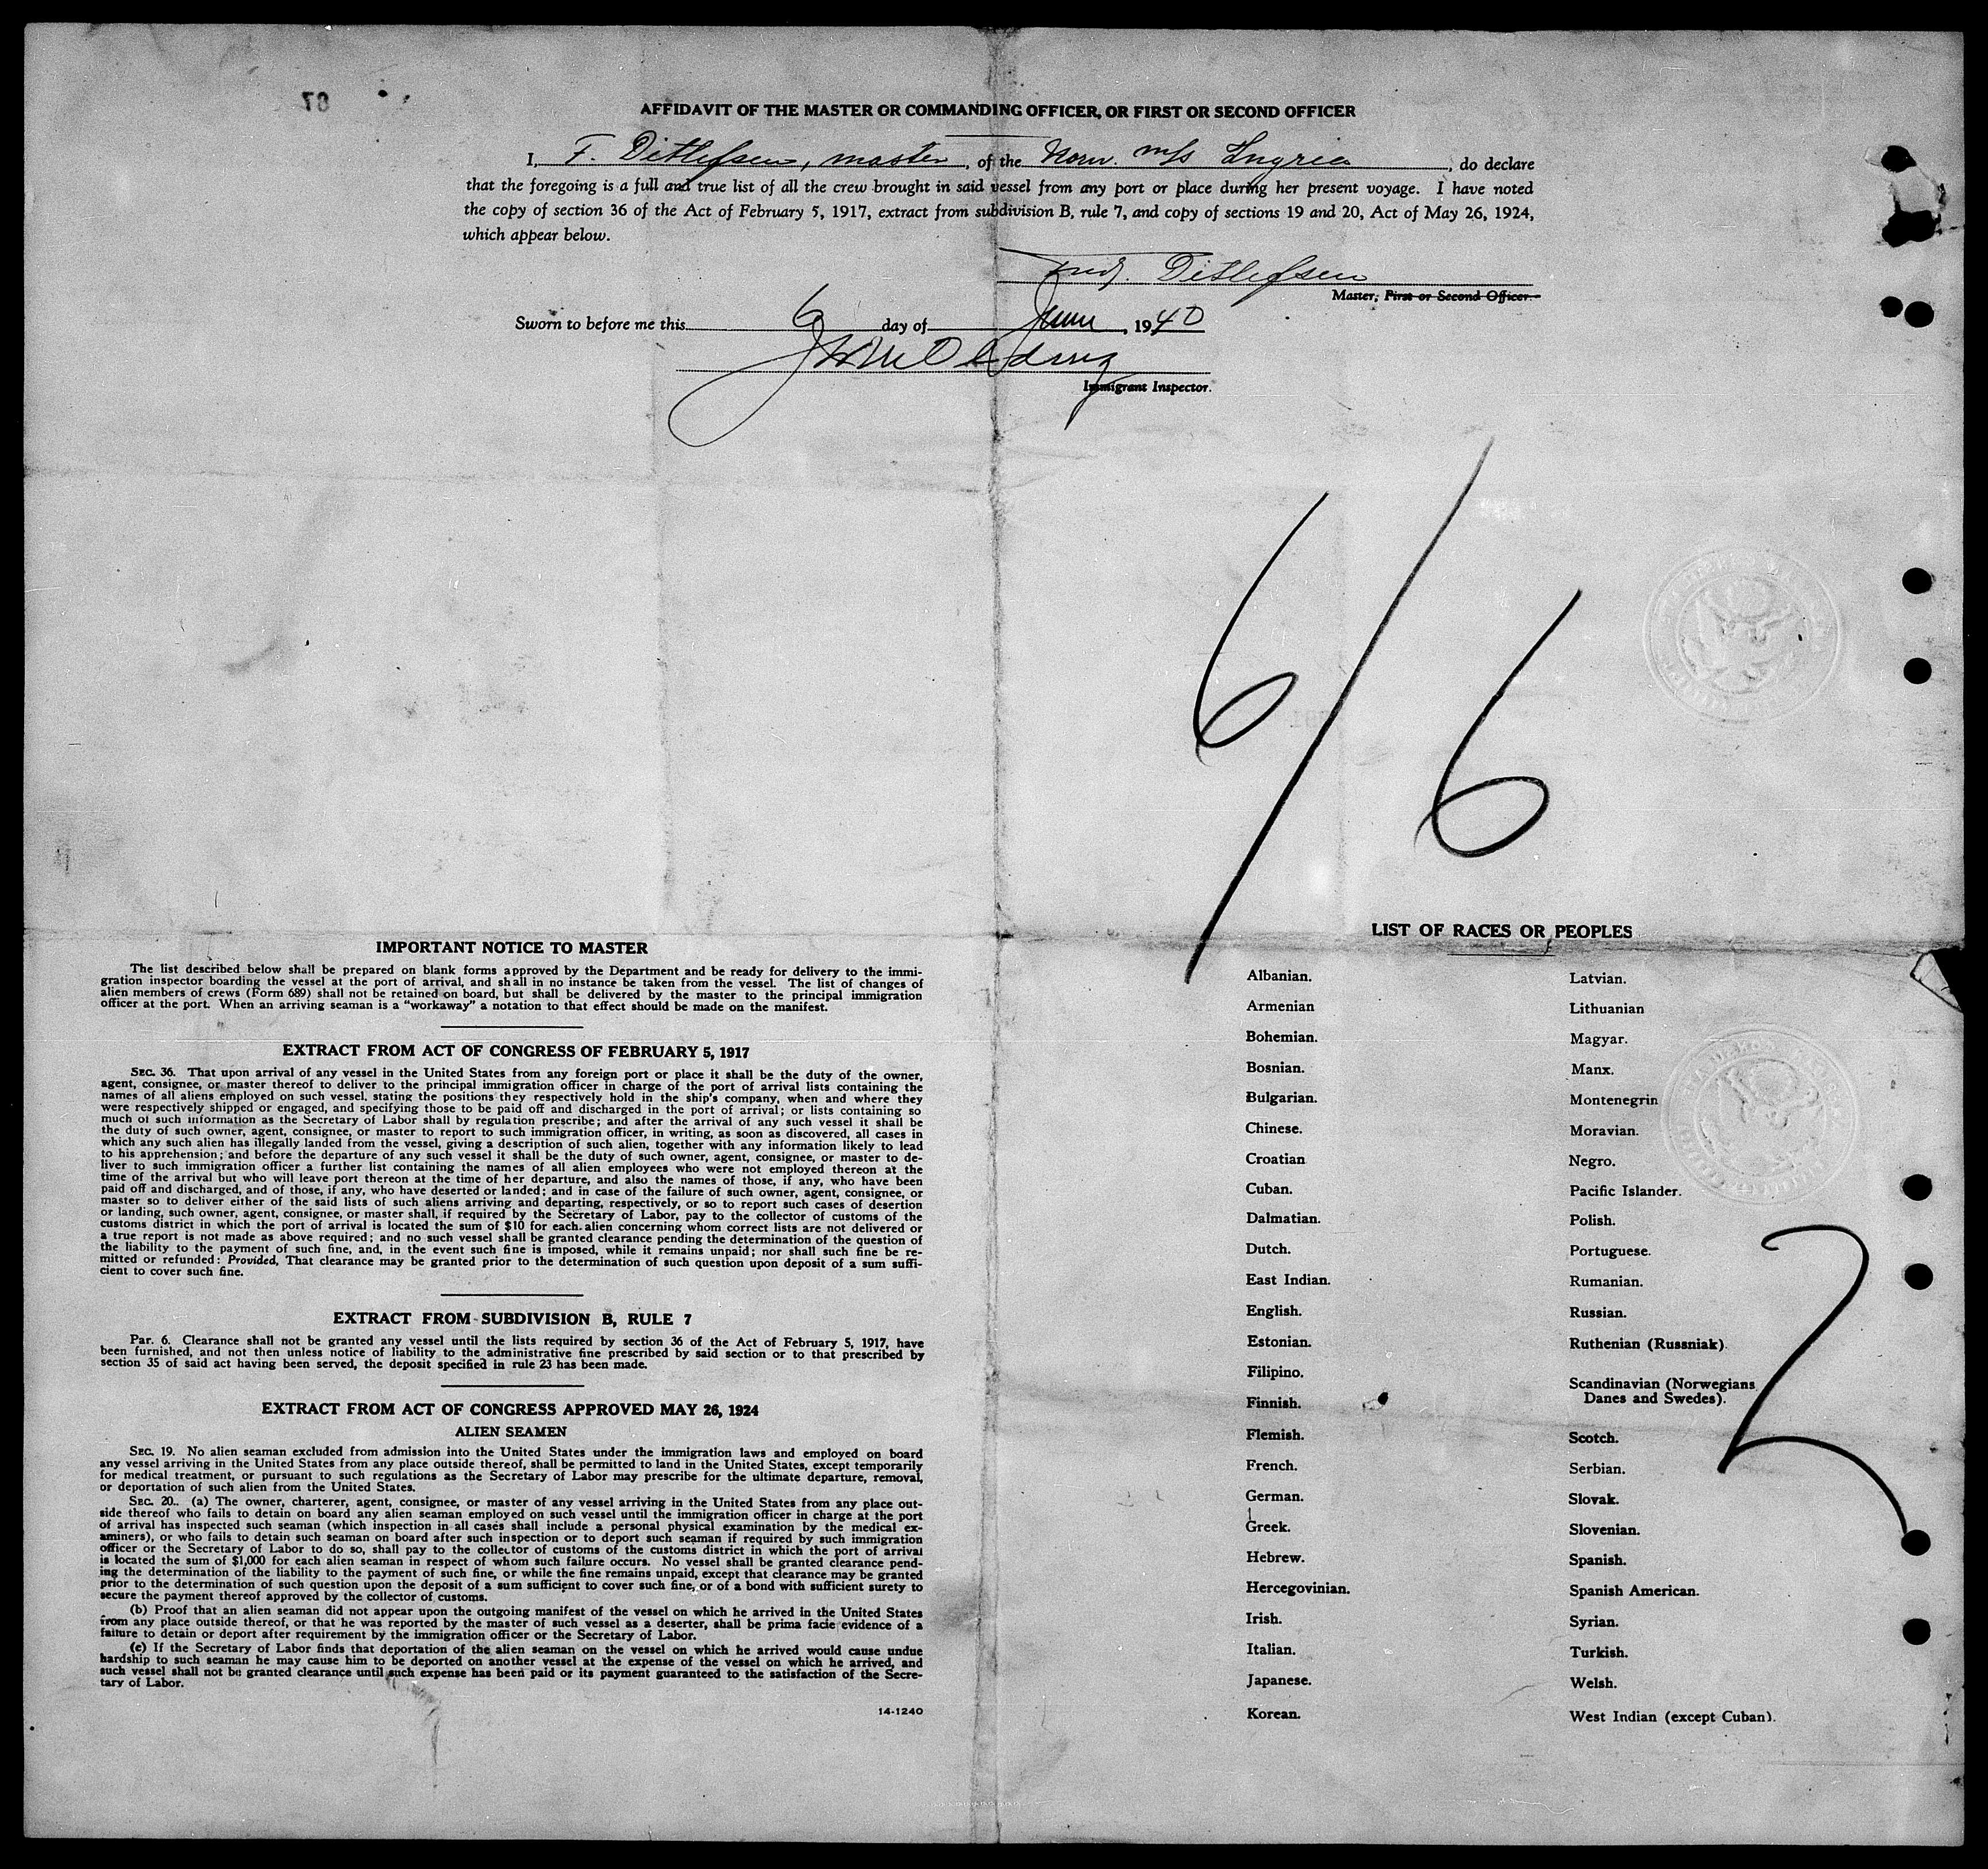 AFFIDAVIT OF THE MASTER OR COMMANDING OFFICER, OR FIRST OR SECOND OFFICER
I, F. Ditlefsen, master, of the Norw. m/s Ingria, do declare
that the foregoing is a full and true list of all the crew brought in said vessel from any port or place during her present voyage. I have noted
the copy of section 36 of the Act of February 5, 1917, extract from subdivision B, rule 7, and copy of sections 19 and 20, Act of May 26, 1924,
which appear below.
Ditlefsen
Master, First or Second Officer.
Sworn to before me this 6 day of June, 1940
Immigrant Inspector.
6/6
IMPORTANT NOTICE TO MASTER
The list described below shall be prepared on blank forms approved by the Department and be ready for delivery to the immi-
gration inspector boarding the vessel at the port of arrival, and shall in no instance be taken from the vessel. The list of changes of
alien members of crews (Form 689) shall not be retained on board, but shall be delivered by the master to the principal immigration
officer at the port. When an arriving seaman is a "workaway" a notation to that effect should be made on the manifest.
EXTRACT FROM ACT OF CONGRESS OF FEBRUARY 5, 1917
SEC. 36. That upon arrival of any vessel in the United States from any foreign port or place it shall be the duty of the owner,
agent, consignee, or master thereof to deliver to the principal immigration officer in charge of the port of arrival lists containing the
names of all aliens employed on such vessel, stating the positions they respectively hold in the ship's company, when and where they
were respectively shipped or engaged, and specifying those to be paid off and discharged in the port of arrival; or lists containing so
much of such information as the Secretary of Labor shall by regulation prescribe; and after the arrival of any such vessel it shall be
the duty of such owner, agent, consignee, or master to report to such immigration officer, in writing, as soon as discovered, all cases in
which any such alien has illegally landed from the vessel, giving a description of such alien, together with any information likely to lead
to his apprehension; and before the departure of any such vessel it shall be the duty of such owner, agent, consignee, or master to de-
liver to such immigration officer a further list containing the names of all alien employees who were not employed thereon at the
time of the arrival but who will leave port thereon at the time of her departure, and also the names of those, if any, who have been
paid off and discharged, and of those, if any, who have deserted or landed; and in case of the failure of such owner, agent, consignee, or
master so to deliver either of the said lists of such aliens arriving and departing, respectively, or so to report such cases of desertion
or landing, such owner, agent, consignee, or master shall, if required by the Secretary of Labor, pay to the collector of customs of the
customs district in which the port of arrival is located the sum of $10 for each alien concerning whom correct lists are not delivered or
a true report is not made as above required; and no such vessel shall be granted clearance pending the determination of the question of
the liability to the payment of such fine, and, in the event such fine is imposed, while it remains unpaid; nor shall such fine be re-
mitted or refunded: Provided, That clearance may be granted prior to the determination of such question upon deposit of a sum suffi-
cient to cover such fine.
EXTRACT FROM SUBDIVISION B, RULE 7
Par. 6. Clearance shall not be granted any vessel until the lists required by section 36 of the Act of February 5, 1917, have
been furnished, and not then unless notice of liability to the administrative fine prescribed by said section or to that prescribed by
section 35 of said act having been served, the deposit specified in rule 23 has been made.
EXTRACT FROM ACT OF CONGRESS APPROVED MAY 26, 1924
ALIEN SEAMEN
SEC. 19. No alien seaman excluded from admission into the United States under the immigration laws and employed on board
any vessel arriving in the United States from any place outside thereof, shall be permitted to land in the United States, except temporarily
for medical treatment, or pursuant to such regulations as the Secretary of Labor may prescribe for the ultimate departure, removal,
or deportation of such alien from the United States.
SEC. 20. (a) The owner, charterer, agent, consignee, or master of any vessel arriving in the United States from any place out-
side thereof who fails to detain on board any alien seaman employed on such vessel until the immigration officer in charge at the port
of arrival has inspected such seaman (which inspection in all cases shall include a personal physical examination by the medical ex-
aminers), or who fails to detain such seaman on board after such inspection or to deport such seaman if required by such immigration
officer or the Secretary of Labor to do so, shall pay to the collector of customs of the customs district in which the port of arrival
is located the sum of $1,000 for each alien seaman in respect of whom such failure occurs. No vessel shall be granted clearance pend-
ing the determination of the liability to the payment of such fine, or while the fine remains unpaid, except that clearance may be granted
prior to the determination of such question upon the deposit of a sum sufficient to cover such fine, or of a bond with sufficient surety to
secure the payment thereof approved by the collector of customs.
(b) Proof that an alien seaman did not appear upon the outgoing manifest of the vessel on which he arrived in the United States
from any place outside thereof, or that he was reported by the master of such vessel as a deserter, shall be prima facie evidence of a
failure to detain or deport after requirement by the immigration officer or the Secretary of Labor.
(c) If the Secretary of Labor finds that deportation of the alien seaman on the vessel on which he arrived would cause undue
hardship to such seaman he may cause him to be deported on another vessel at the expense of the vessel on which he arrived, and
such vessel shall not be granted clearance until such expense has been paid or its payment guaranteed to the satisfaction of the Secre-
tary of Labor.
14-1240
LIST OF RACES OR PEOPLES
Albanian.
Armenian
Bohemian.
Bosnian.
Bulgarian.
Chinese.
Croatian
Cuban.
Dalmatian.
Dutch.
East Indian.
English.
Estonian.
Filipino.
Finnish.
Flemish.
French.
German.
Greek.
Hebrew.
Hercegovinian.
Irish.
Italian.
Japanese.
Korean.
Latvian.
Lithuanian
Magyar.
Manx.
Montenegrin
Moravian.
Negro.
Pacific Islander.
Polish.
Portuguese.
Rumanian.
Russian.
Ruthenian (Russniak).
Scandinavian (Norwegians
Danes and Swedes).
Scotch.
Serbian.
Slovak.
Slovenian.
Spanish.
Spanish American.
Syrian.
Turkish.
Welsh.
West Indian (except Cuban).
2